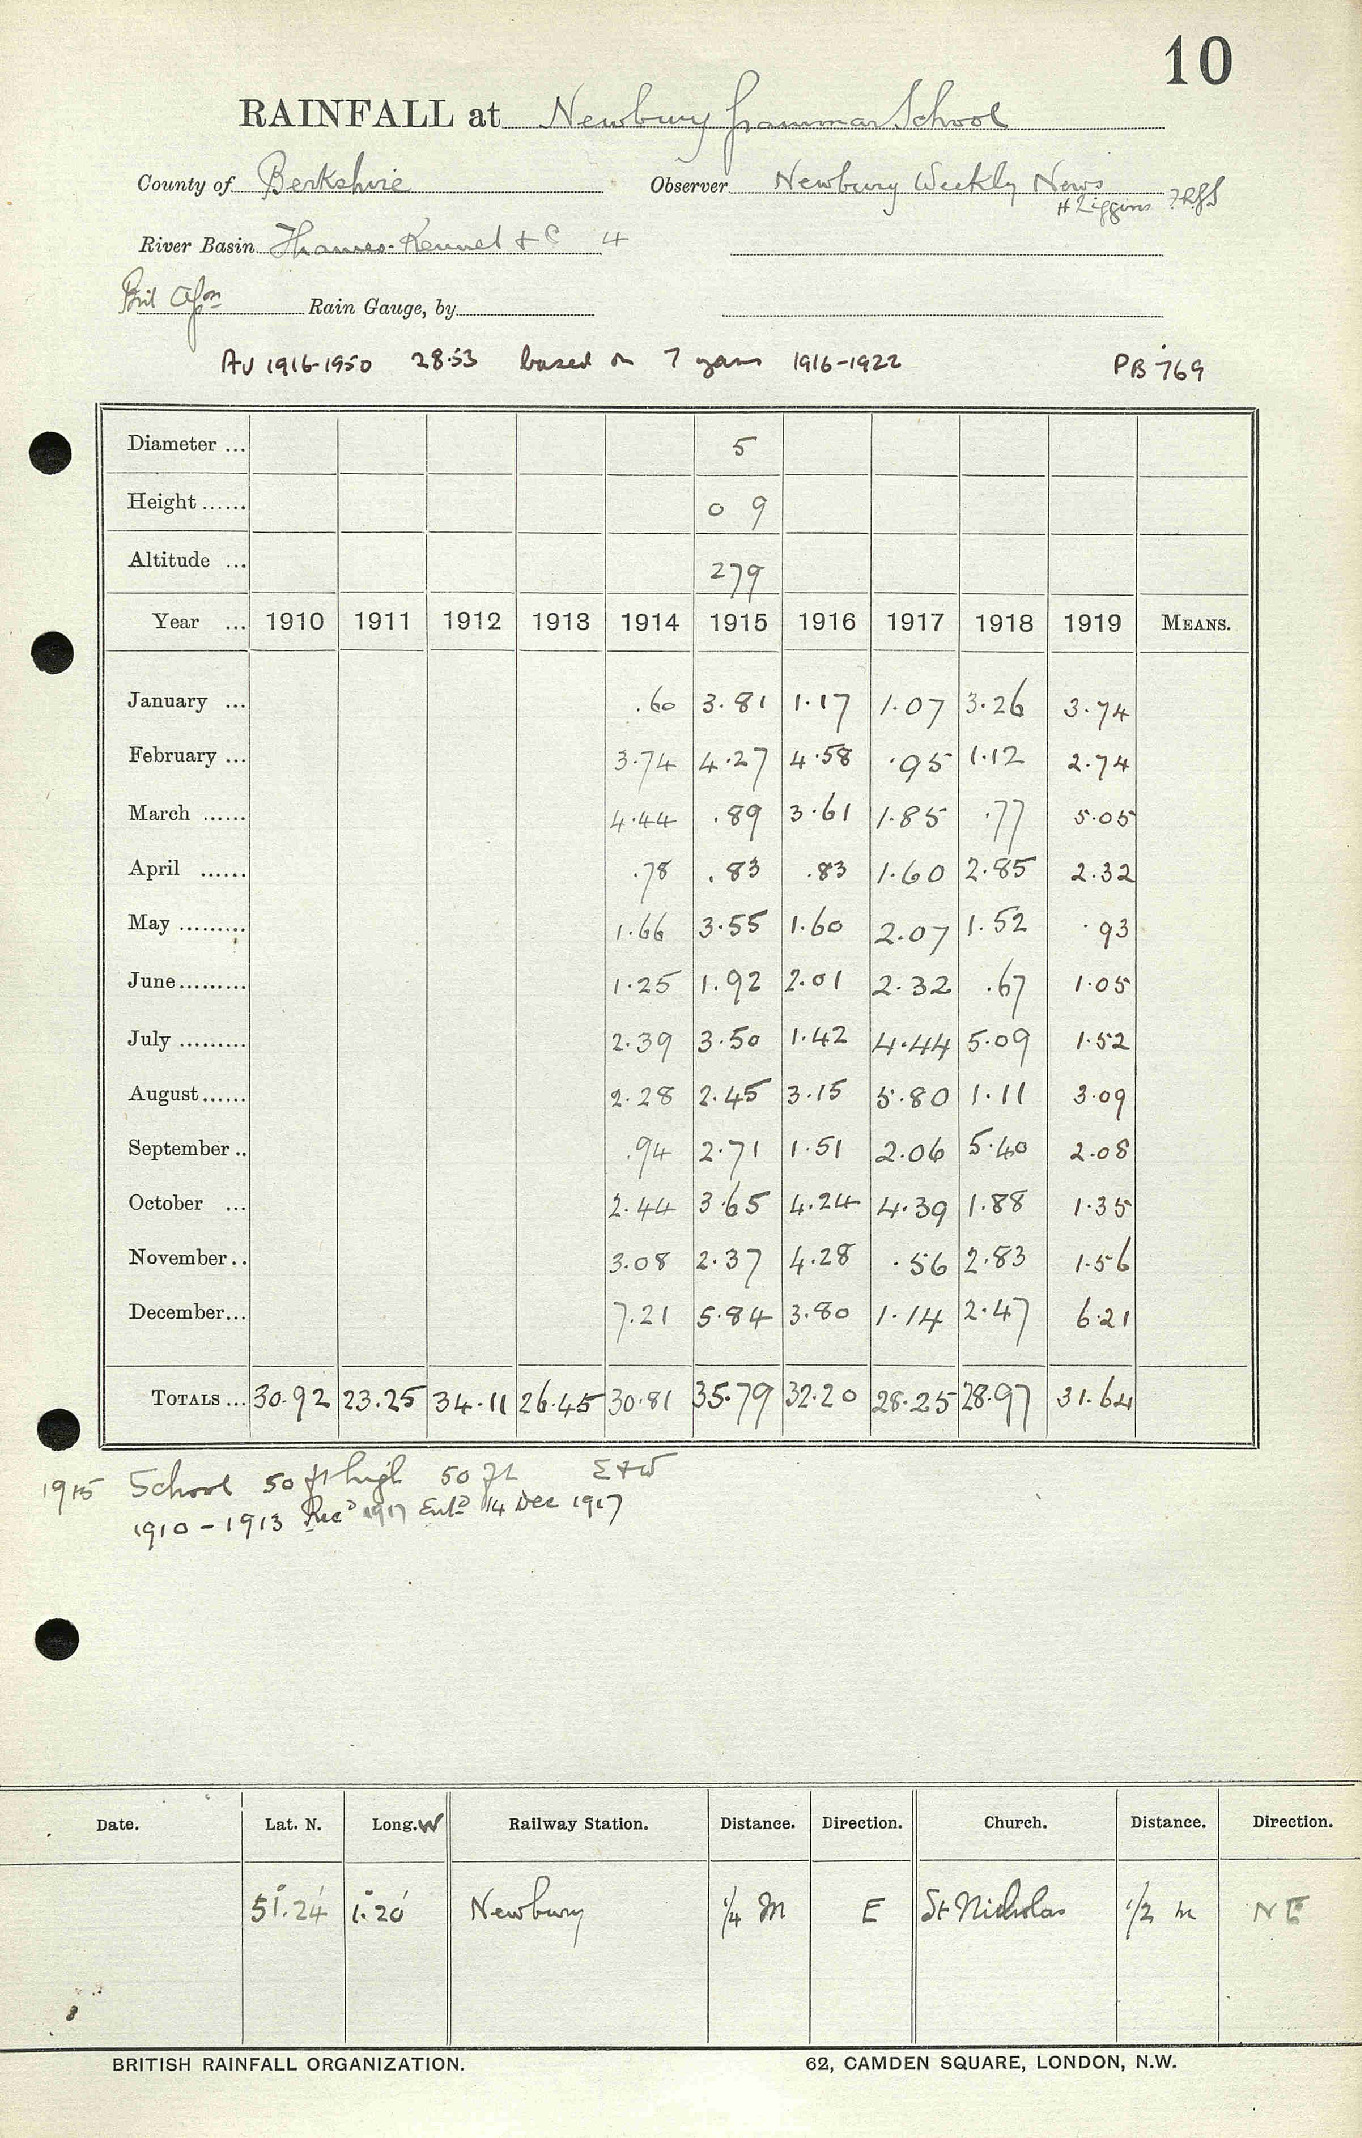 10
RAINFALL at Newbury Grammar School
County of Berkshire Observer Newbury Weekly News
H Liggins
River Basin Thames-Kennet + C 4
Rain Gauge, by
Av 1916-1950 28.53 based on 7 years 1916-1922 PB 769
Diameter ... 5
Height ...... 0 9
Altitude ... 279
Year ... 1910 1911 1912 1913 1914 1915 1916 1917 1918 1919 MEANS.
January ... .60 3.81 1.17 1.07 3.26 3.74
February ... 3.74 4.27 4.58 .95 1.12 2.74
March ...... 4.44 .89 3.61 1.85 .77 5.05
April ...... .78 .83 .83 1.60 2.85 2.32
May ......... 1.66 3.55 1.60 2.07 1.52 .93
June......... 1.25 1.92 2.01 2.32 .67 1.05
July ......... 2.39 3.50 1.42 4.44 5.09 1.52
August...... 2.28 2.45 3.15 5.80 1.11 3.09
September .. .94 2.71 1.51 2.06 5.40 2.08
October ... 2.44 3.65 4.24 4.39 1.88 1.35
November.. 3.08 2.37 4.28 .56 2.83 1.56
December... 7.21 5.84 3.80 1.14 2.47 6.21
TOTALS ... 30.92 23.25 34.11 26.45 30.81 35.79 32.20 28.25 28.97 31.64
1915 School 50 ft high 50 ft E+W
1910-1913 Rec'd 1917 Ent'd 14 Dec 1917
Date. Lat. N. Long. W Railway Station. Distance. Direction. Church. Distance. Direction.
51°.24' 1°.20' Newbury 1/4 M E St Nicholas 1/2 m NE
BRITISH RAINFALL ORGANIZATION. 62, CAMDEN SQUARE, LONDON, N.W.